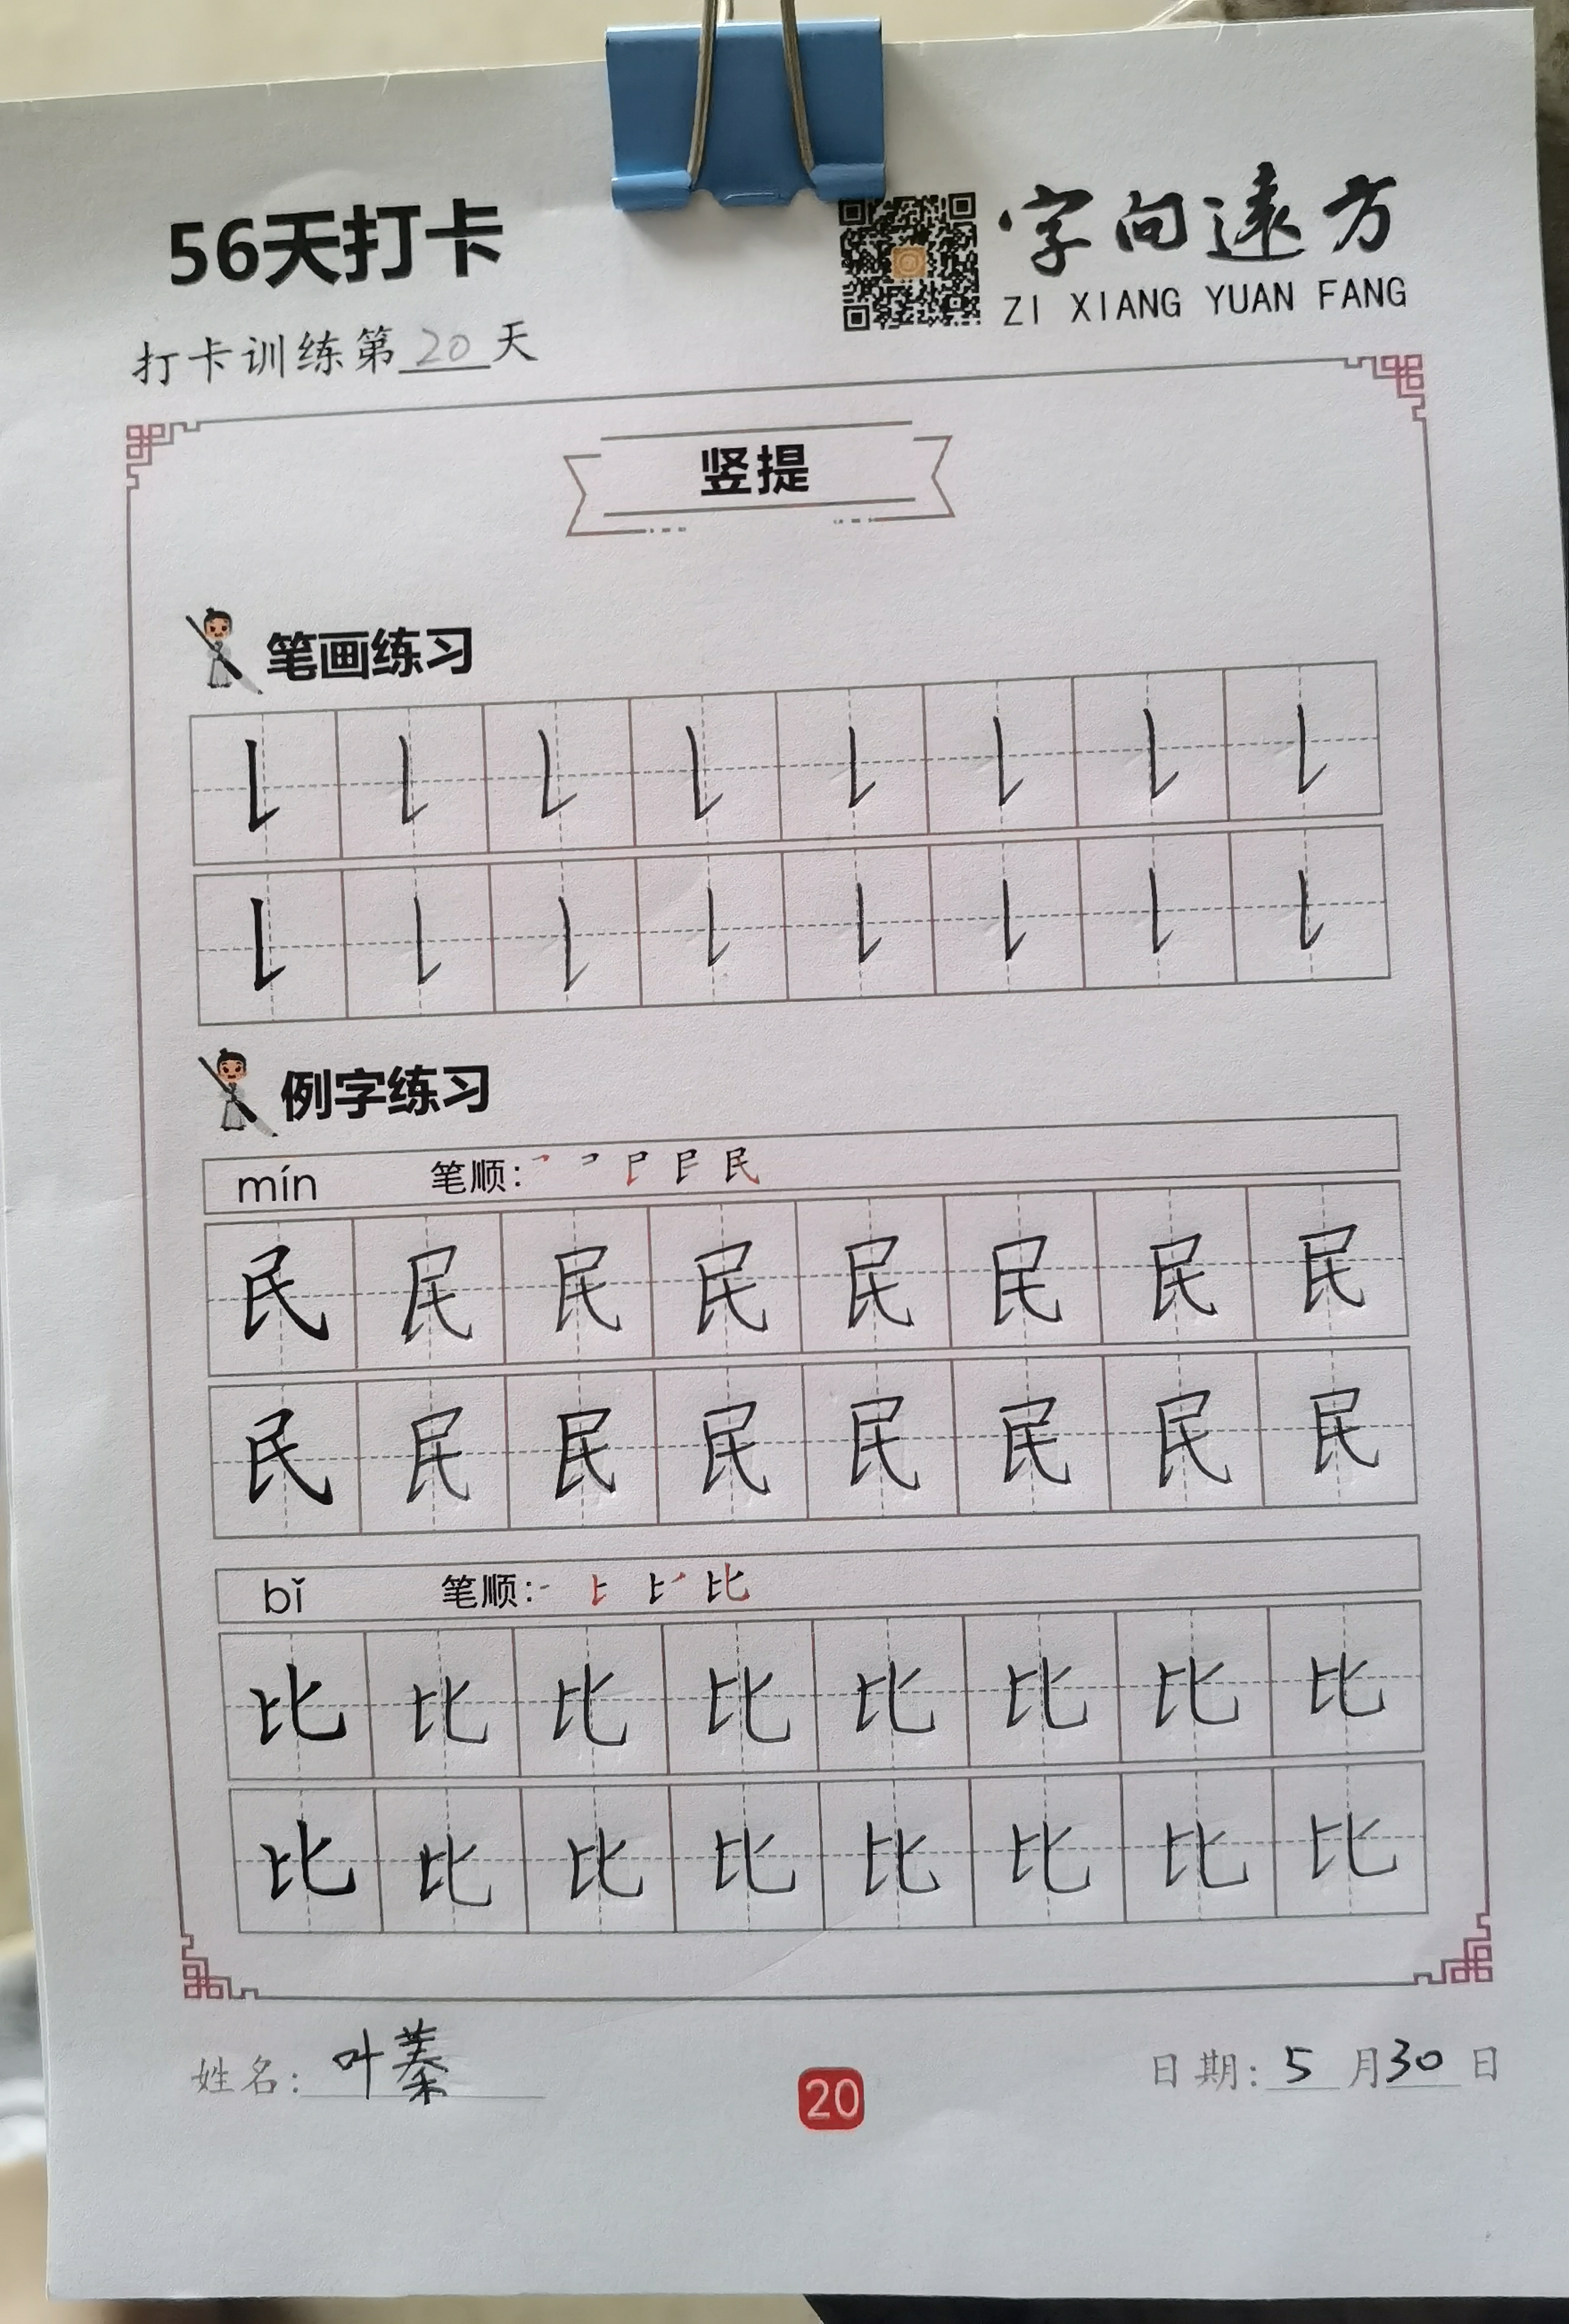 56天打卡
字向遠方
ZI XIANG YUAN FANG
打卡训练第20天
竖提
笔画练习
例字练习
mín 笔顺:
民 民 民 民 民 民 民 民
民 民 民 民 民 民 民 民
bǐ 笔顺:
比 比 比 比 比 比 比 比
比 比 比 比 比 比 比 比
姓名: 叶蓁
20
日期: 5月30日